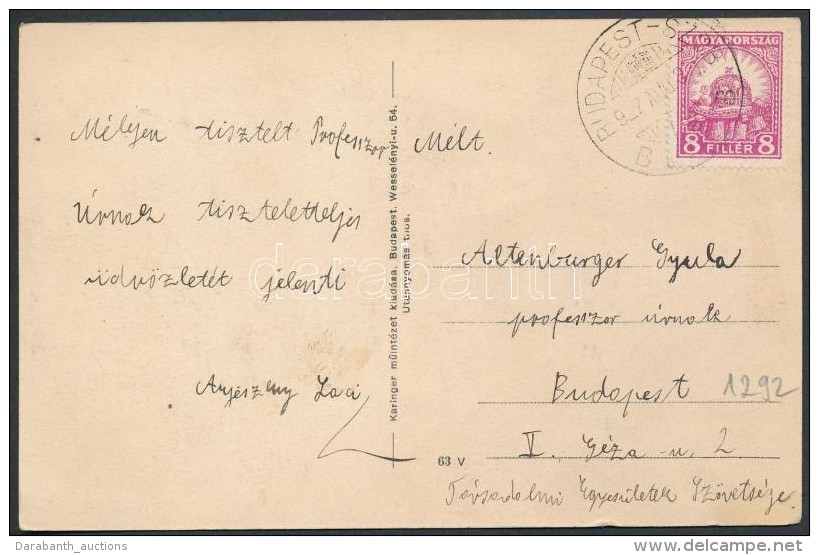 Mélyen tisztelt Professzor
Úrnak tiszteletteljes
üdvözletét jelenti
Laci
Karinger műintézet kiadása. Budapest, Wesselényi-u. 54.
Utánnyomás tilos.
63 V
BUDAPEST
B
MAGYARORSZÁG
8 FILLÉR 8
Mélt.
Altenburger Gyula
professzor úrnak
Budapest
1292
V. Géza-u. 2
Társadalmi Egyesületek Szövetsége
darabanth
Darabanth_auctions
delcampe.net